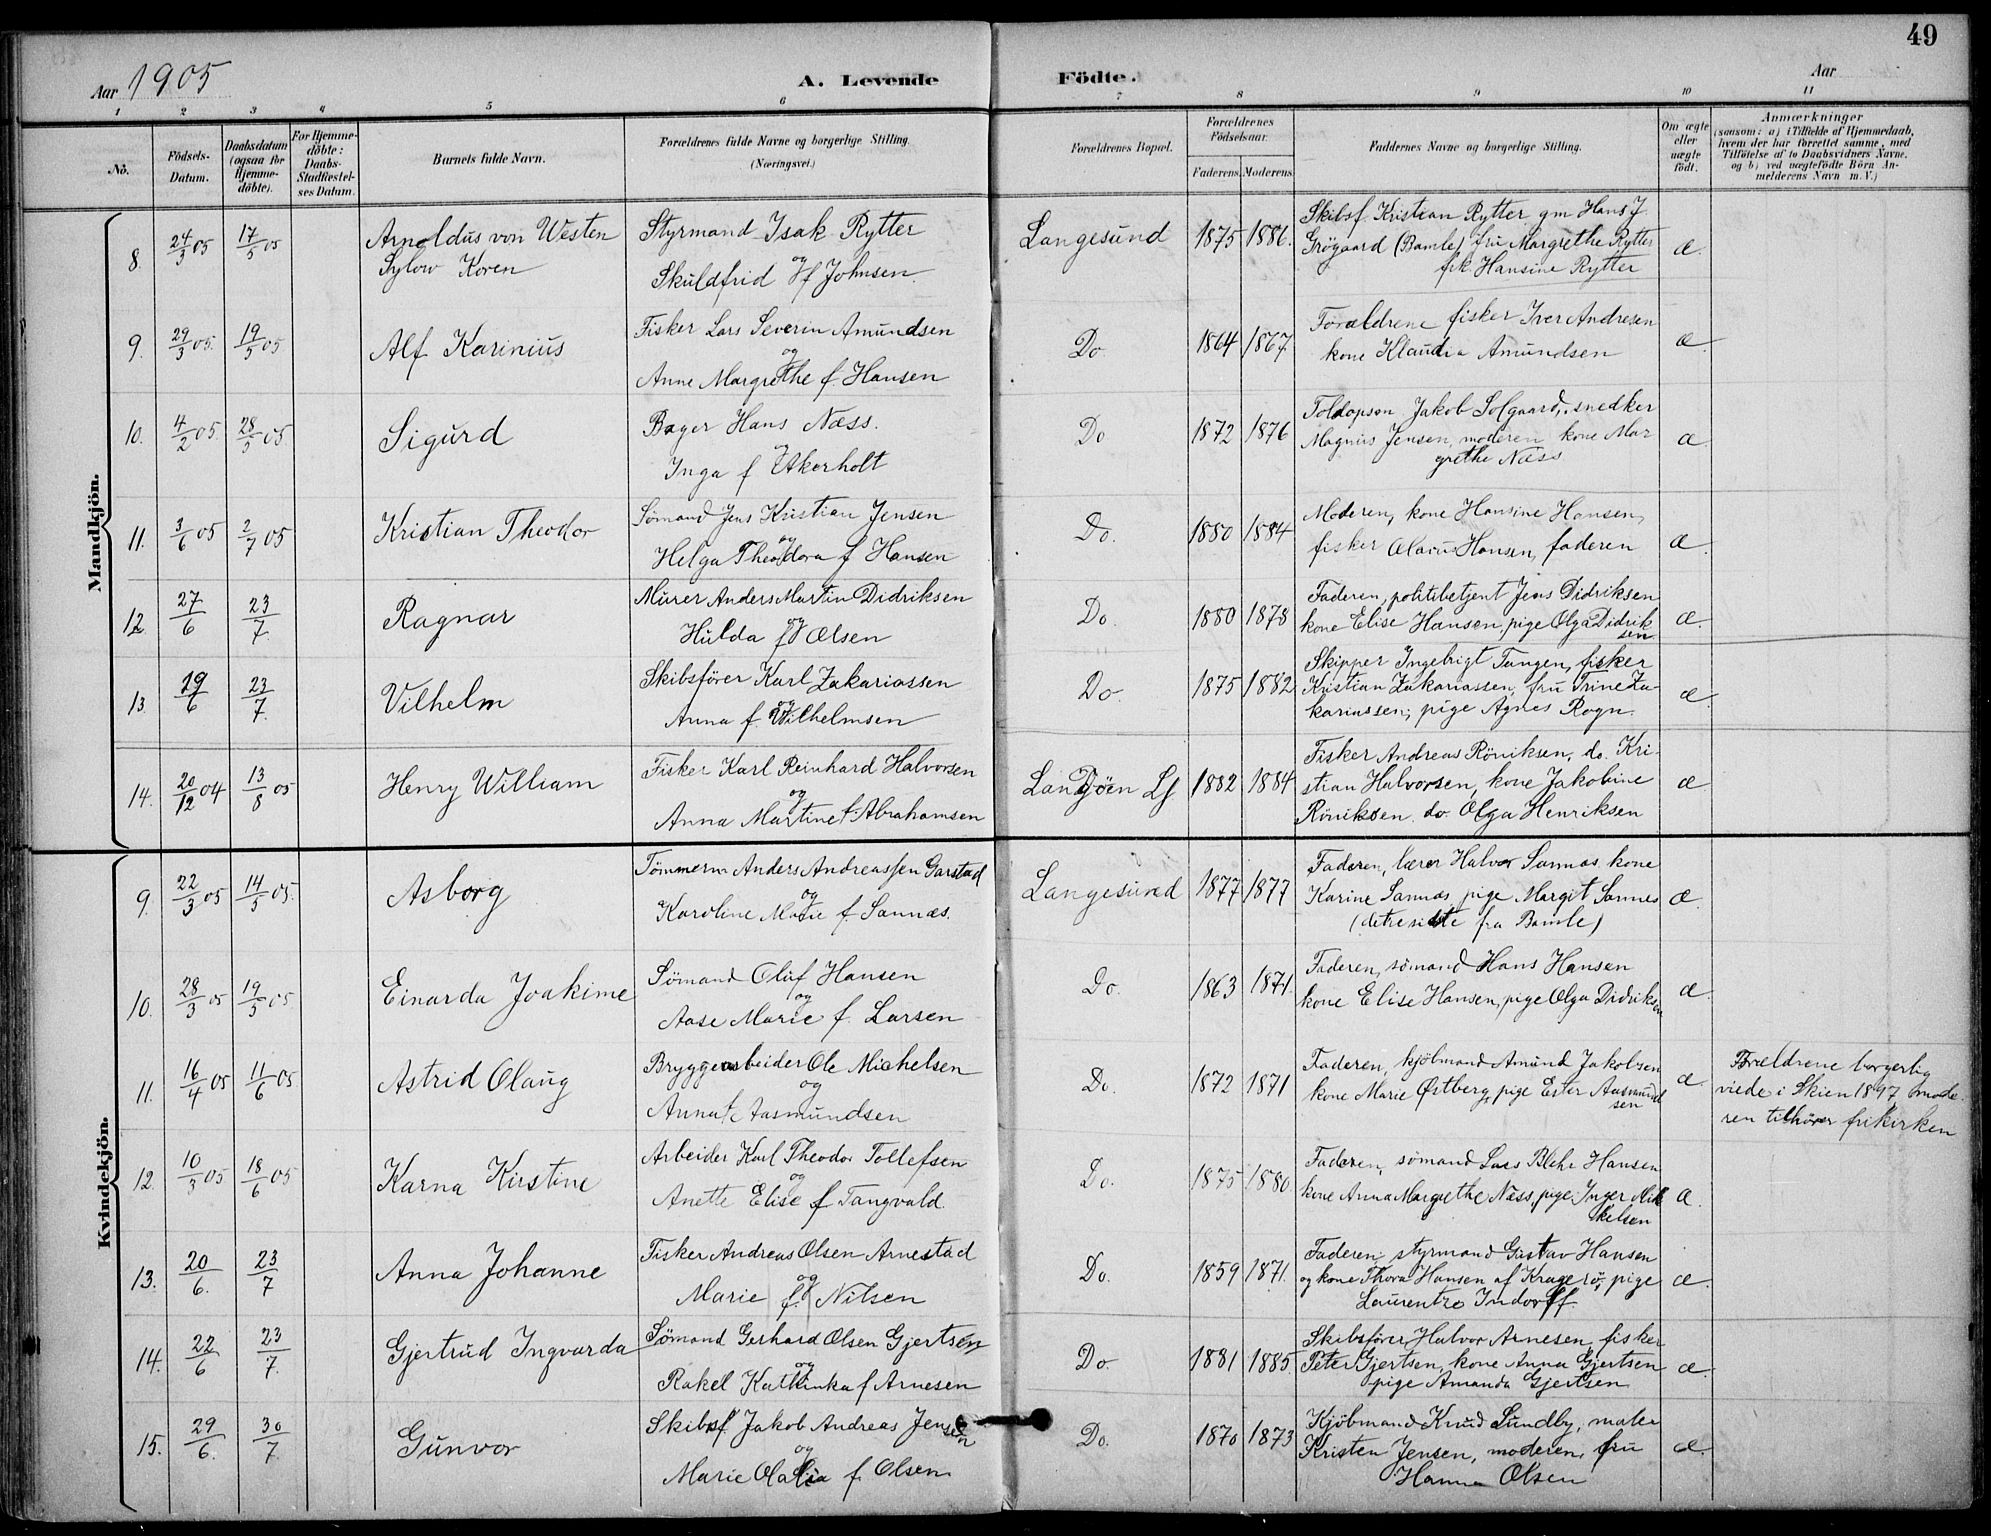 49
Aar 1905
A. Levende Födte.
Aar
1 2 3 4 5 6 7 8 9 10 11
No.
Födsels-Datum.
Daabsdatum (ogsaa for Hjemmedöbte).
For Hjemmedöbte: Daabs-Stadfæstelses Datum.
Barnets fulde Navn.
Forældrenes fulde Navne og borgerlige Stilling. (Næringsvei.)
Forældrenes Bopæl.
Forældrenes Födselsaar.
Faderens. Moderens.
Faddernes Navne og borgerlige Stilling.
Om ægte eller uægte födt.
Anmærkninger
(saasom: a) i Tilfælde af Hjemmedaab, hvem der har forrettet samme, med Tilföielse af to Daabsvidners Navne, og b) ved uægtefödte Börn Anmelderens Navn m. V.)
Mandkjön.
8. 24/3 05 17/5 05
Arnoldus von Westen
Sylow Koren
Styrmand Isak Rytter
og
Skuldfrid f Johnsen.
Langesund 1875 1886.
Skibsf Kristian Rytter gm Hans J
Grögaard (Bamle) fru Margrethe Rytter
frk. Hansine Rytter
æ.
9. 29/3 05. 19/5 05
Alf Karinius
Fisker Lars Severin Amundsen
og
Anne Margrethe f. Hansen
Do. 1864 1867
Forældrene, fisker Iver Andresen
kone Klaudia Amundsen
æ.
10. 4/2 05. 28/5 05
Sigurd
Bager Hans Næss.
og
Inga f Akerholt
Do 1872 1876
Toldopsen Jakob Solgaard, snedker
Magnus Jensen, moderen kone Mar
grethe Næss
æ.
11. 3/6 05 2/7 05
Kristian Theodor
Sömand Jens Kristian Jensen
og
Helga Theodora f Hansen
Do. 1880 1884
Moderen, kone Hansine Hansen,
fisker Olaus Hansen, faderen
æ.
12. 27/6 23/7.
Ragnar
Murer Anders Martin Didriksen
og
Hulda f Olsen
Do. 1880 1878
Faderen, politibetjent Jens Didriksen
kone Elise Hansen, pige Olga Didrik
sen.
æ.
13. 19/6 23/7.
Vilhelm
Skibsförer Karl Zakariassen
og
Anna f. Wilhelmsen
Do. 1875 1882
Skipper Ingebrigt Tangen, fisker
Kristian Zakariassen, fru Trine Za-
kariassen, pige Agnes Rogn.
æ.
14. 20/12 04 13/8 05
Henry William
Fisker Karl Reinhard Halvorsen
og
Anna Martine f. Abrahamsen
Langöen Lg 1882 1884
Fisker Andreas Röniksen, do. Kri-
stian Halvorsen, kone Jakobine
Röniksen. do. Olga Henriksen
æ
Kvindekjön.
9. 22/3 05 14/5 05.
Asborg
Tömmerm Anders Andreassen Garstad
og
Karoline Marie f. Sannæs.
Langesund 1877 1877
Faderen, lærer Halvor Sannæs, kone
Karine Sannæs, pige Margit Sannes
(de tre sidste fra Bamle)
æ.
10. 28/3 05 19/5 05.
Einarda Joakime
Sömand Oluf Hansen
og
Aase Marie f. Larsen
Do. 1863 1871.
Faderen, sömand Hans Hansen
kone Elise Hansen, pige Olga Didriksen
æ.
11. 16/4 05 11/6 05
Astrid Olaug
Bryggearbeider Ole Michelsen
og
Anna f. Aasmundsen
Do. 1872 1871
Faderen, kjöbmand Amund Jakobsen
kone Marie Østberg, pige Ester Aasmund
sen
æ.
Forældrene borgerlig
viede i Skien 1897, mode-
ren tilhører frikirken
12. 10/3 05 18/6 05
Karna Kirstine
Arbeider Karl Theodor Tollefsen
og
Anette Elise f Tangvald.
Do. 1875 1880
Faderen, sömand Lars Blehr Hansen
kone Anna Margrethe Næss, pige Inger Mik
kelsen
æ.
13. 20/6. 23/7
Anna Johanne
Fisker Andreas Olsen Arnestad
og
Marie f. Nilsen
Do. 1859 1871.
Faderen, styrmand Gustav Hansen
og kone Thora Hansen af Kragerö, pige
Laurentze Indorff
æ.
14. 22/6 23/7.
Gjertrud Ingvarda
Sömand Gerhard Olsen Gjertsen
og
Rakel Kathinka f Arnesen
Do. 1881 1885.
Skibsförer Halvor Arnesen, fisker
Peter Gjertsen, kone Anna Gjertsen
pige Amanda Gjertsen
æ.
15. 29/6. 30/7.
Gunvor
Skibsf Jakob Andreas Jensen
og
Marie Olalia f. Olsen
Do. 1870 1873
Kjöbmand Knud Lundby, maler
Kristen Jensen, moderen, fru
Hanna Olsen
æ.